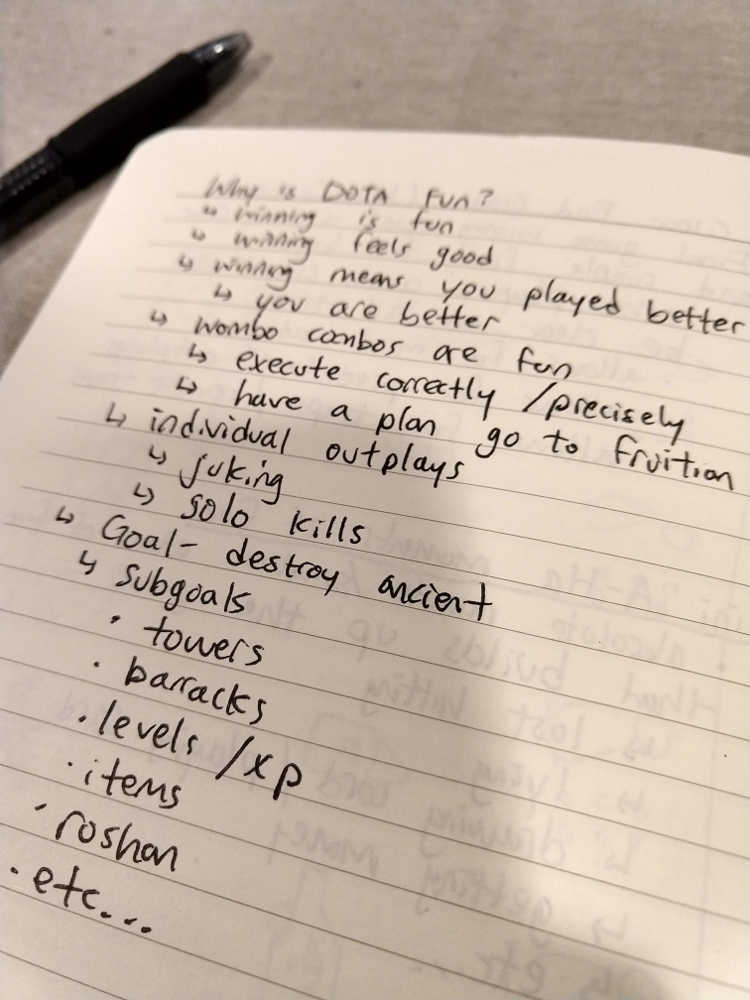 Why is DOTA fun?
↳ winning is fun
↳ winning feels good
↳ winning means you played better
↳ you are better
↳ wombo combos are fun
↳ execute correctly /precisely
↳ have a plan go to fruition
↳ individual outplays
↳ juking
↳ solo kills
↳ Goal- destroy ancient
↳ subgoals
· towers
· barracks
· levels /xp
· items
· roshan
· etc...